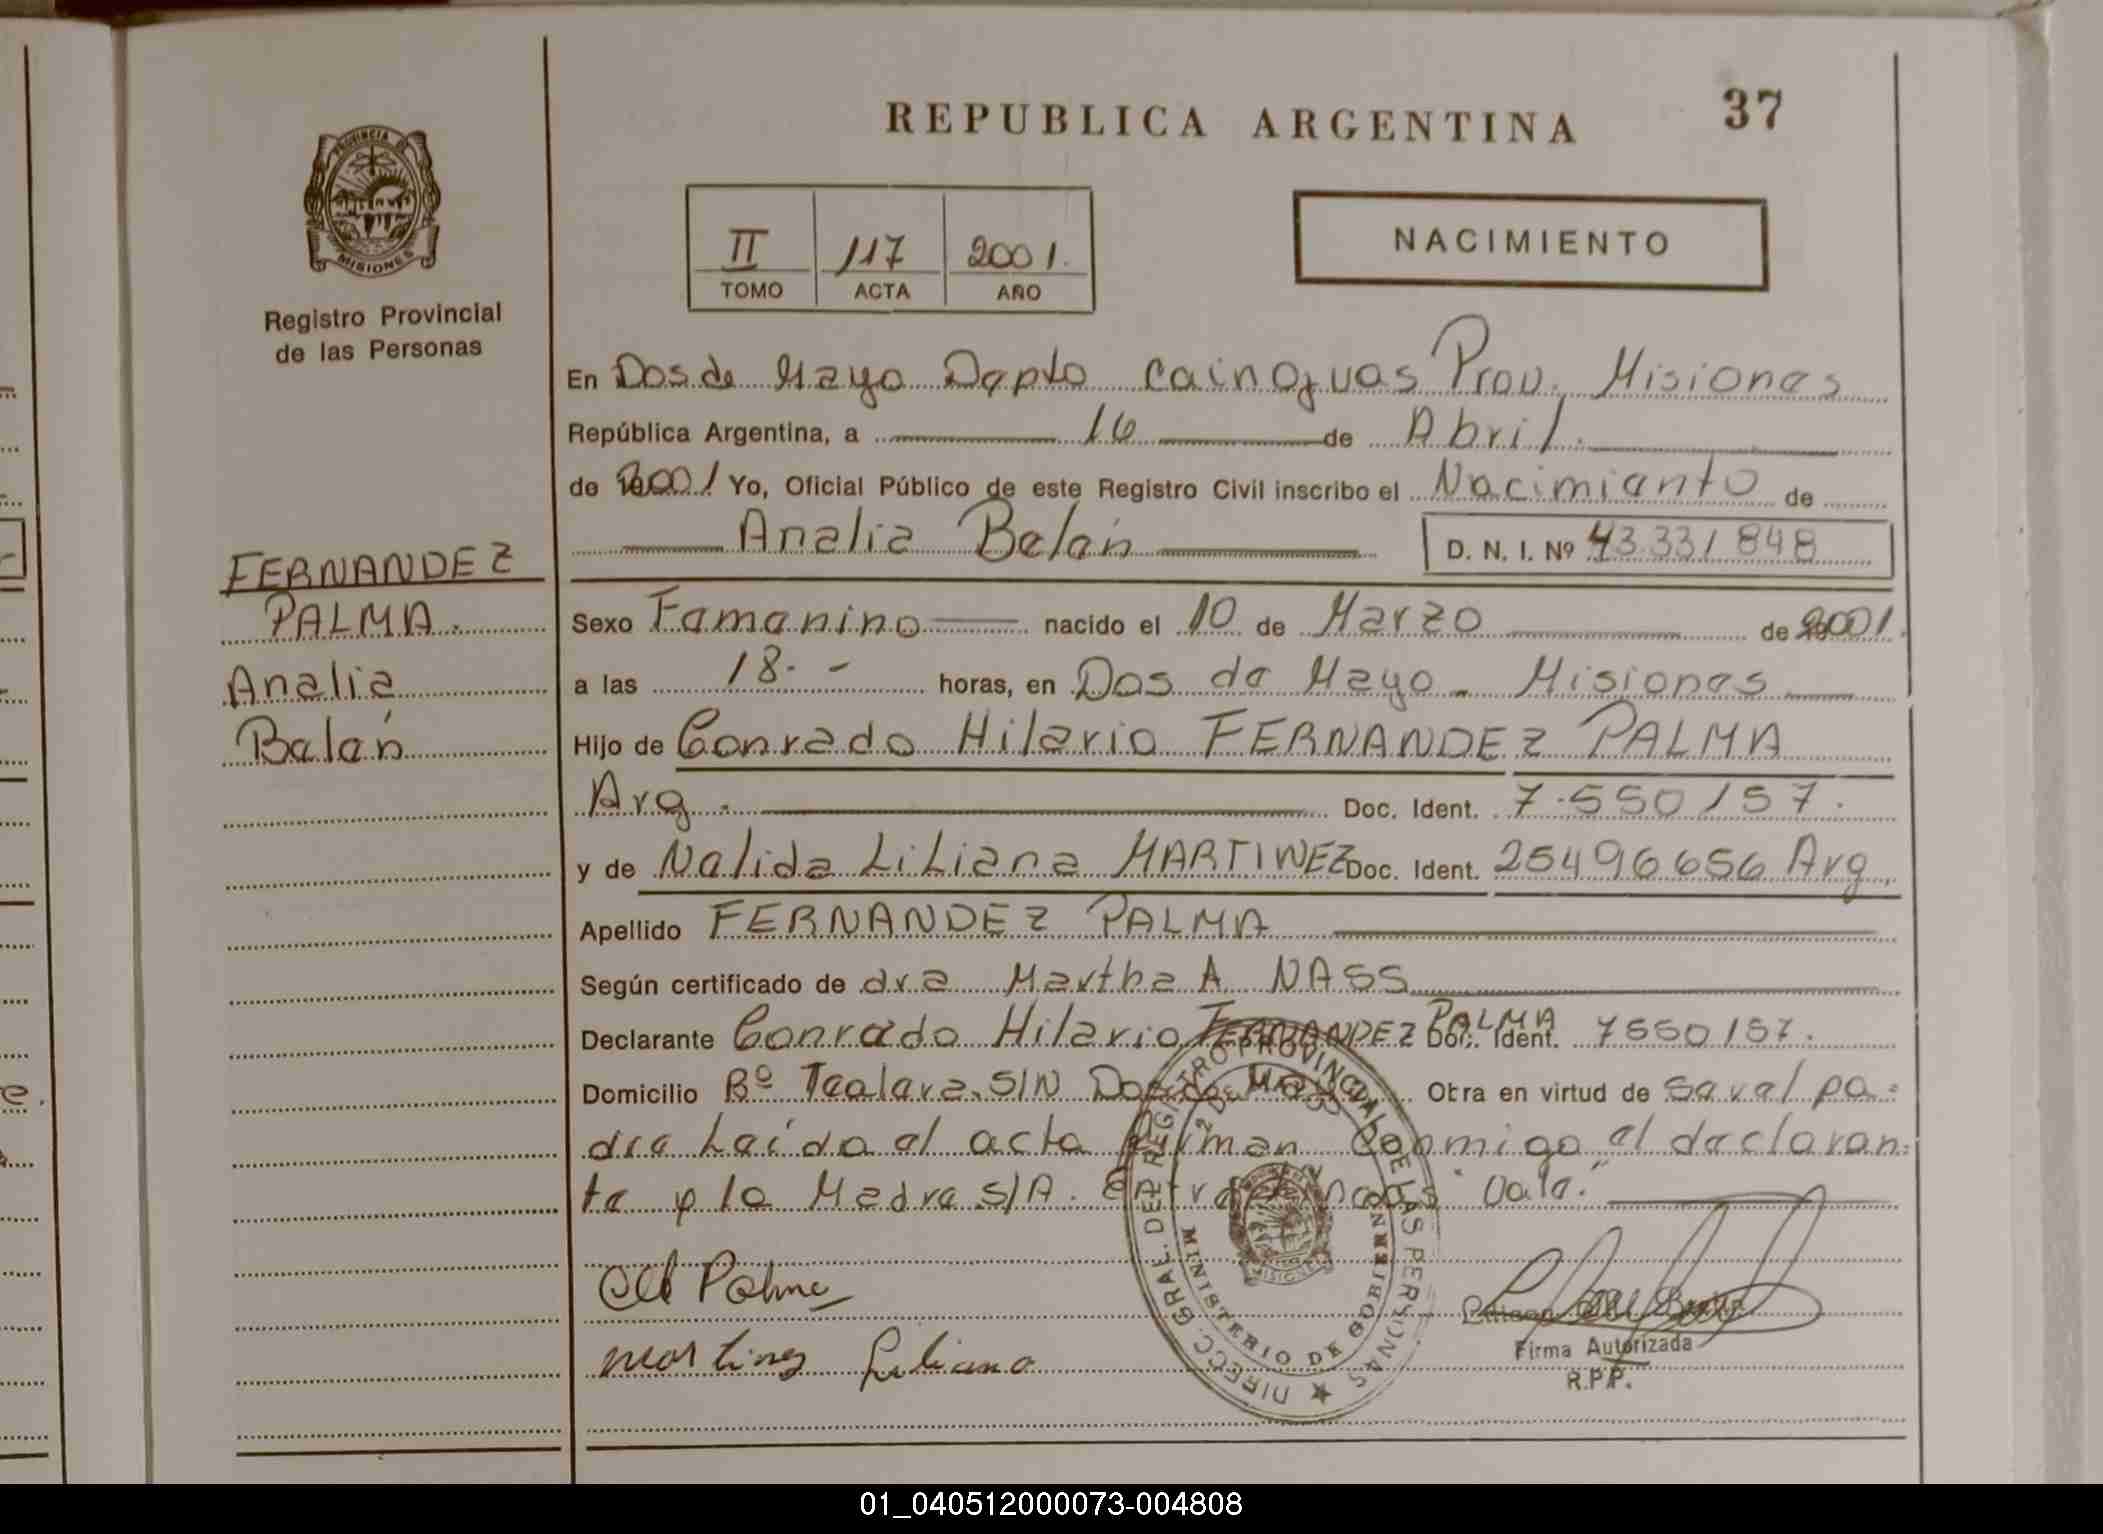 REPUBLICA ARGENTINA
37
PROVINCIA DE
MISIONES
Registro Provincial
de las Personas
II 117 2001.
TOMO ACTA AÑO
NACIMIENTO
En Dos de Mayo Depto Cainguas Prov. Misiones
República Argentina, a 16 de Abril.
de 2001 Yo, Oficial Público de este Registro Civil inscribo el Nacimiento de
Analia Belén D. N. I. Nº 43.331848
FERNANDEZ
PALMA.
Analia
Belén
Sexo Femenino nacido el 10 de Marzo de 2001.
a las 18.- horas, en Dos de Mayo - Misiones
Hijo de Conrado Hilario FERNANDEZ PALMA
Arg. Doc. Ident. 7.550157.
y de Nelida Liliana MARTINEZ Doc. Ident. 25496656 Arg.
Apellido FERNANDEZ PALMA
Según certificado de dra Martha A NASS
Declarante Conrado Hilario FERNANDEZ PALMA Doc. Ident. 7550157.
Domicilio Bº Tealera S/N Dos de Mayo Obra en virtud de ser el pa-
dre Leído el acta firman conmigo el declaran-
te y la Madre S/A. Vale.
DIRECC. GRAL. DEL REGISTRO PROVINCIAL DE LAS PERSONAS
2 DE MAYO
MINISTERIO DE GOBIERNO
MISIONES
Palma
Martinez Liliana
Firma Autorizada
R.P.P.
01_040512000073-004808